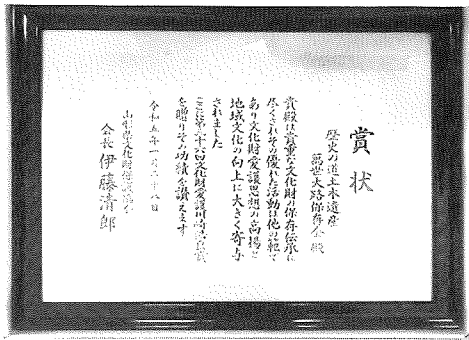 賞状
歴史の道土木遺産
萬世大路保存会殿
貴殿は貴重な文化財の保存伝承に
尽くされその優れた活動は他の範で
あり文化財愛護思想の高揚と
地域文化の向上に大きく寄与
されました
ここに第三十六回文化財愛護
を贈りその功績を讃えます
令和五年 月二十八日
山形県文化財保護協会
会長伊藤清郎